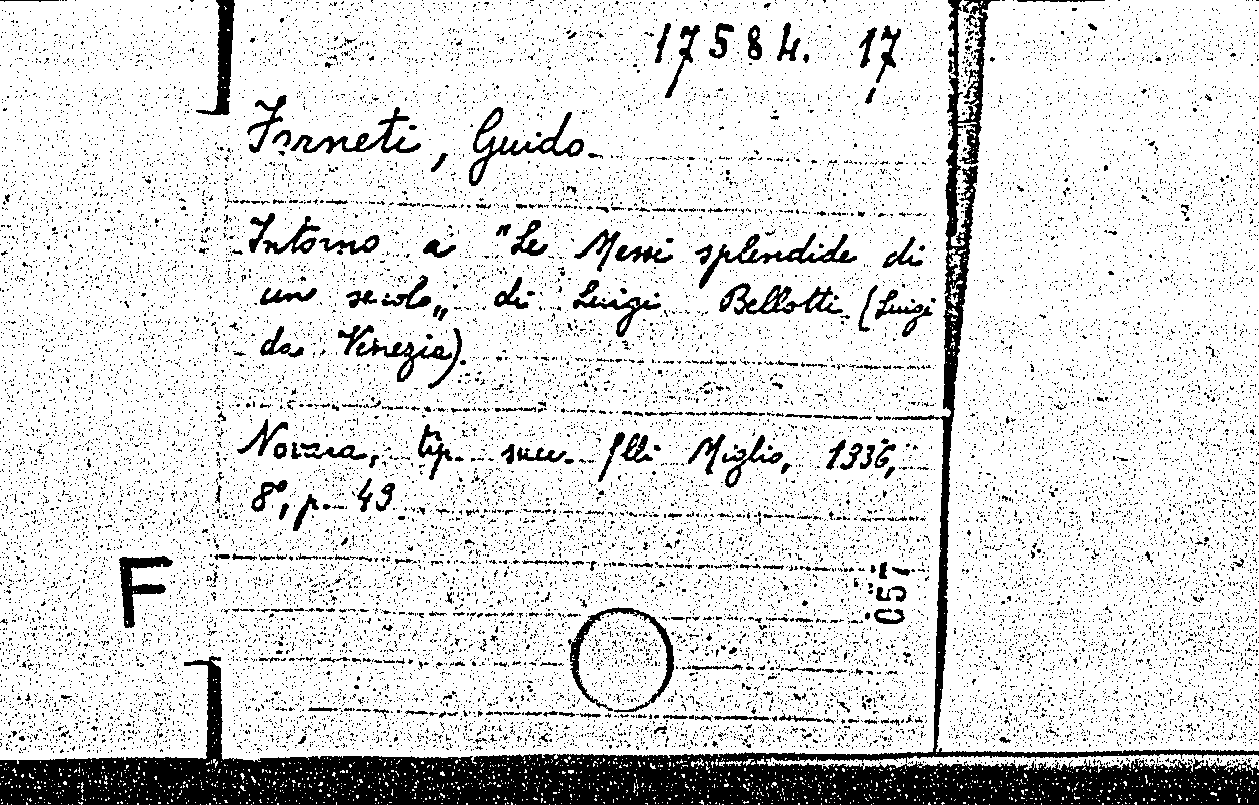 17584. 17
Forneti, Guido.
Intorno a "Le Messi splendide di
un secolo„ di Luigi Bellotti (Luigi
da Venezia).
Novara, tip. succ. f.lli Miglio, 1936,
8°, p. 49
F
057